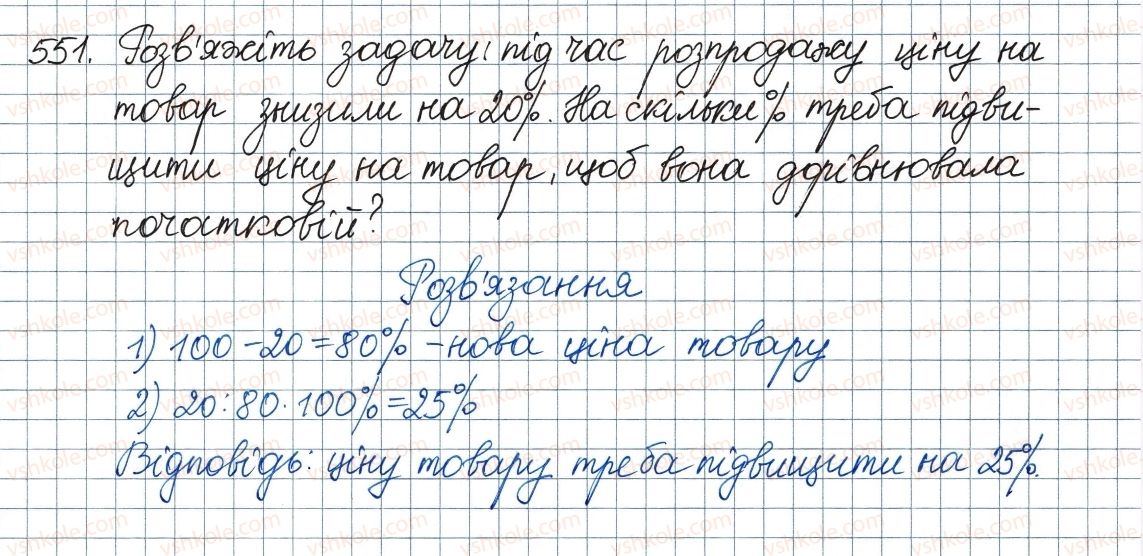 551. Розв'яжіть задачу: під час розпродажу ціну на
товар знизили на 20%. На скільки % треба підви-
щити ціну на товар, щоб вона дорівнювала
початковій?
Розв'язання
1) 100-20=80% - нова ціна товару
2) 20:80·100%=25%
Відповідь: ціну товару треба підвищити на 25%.